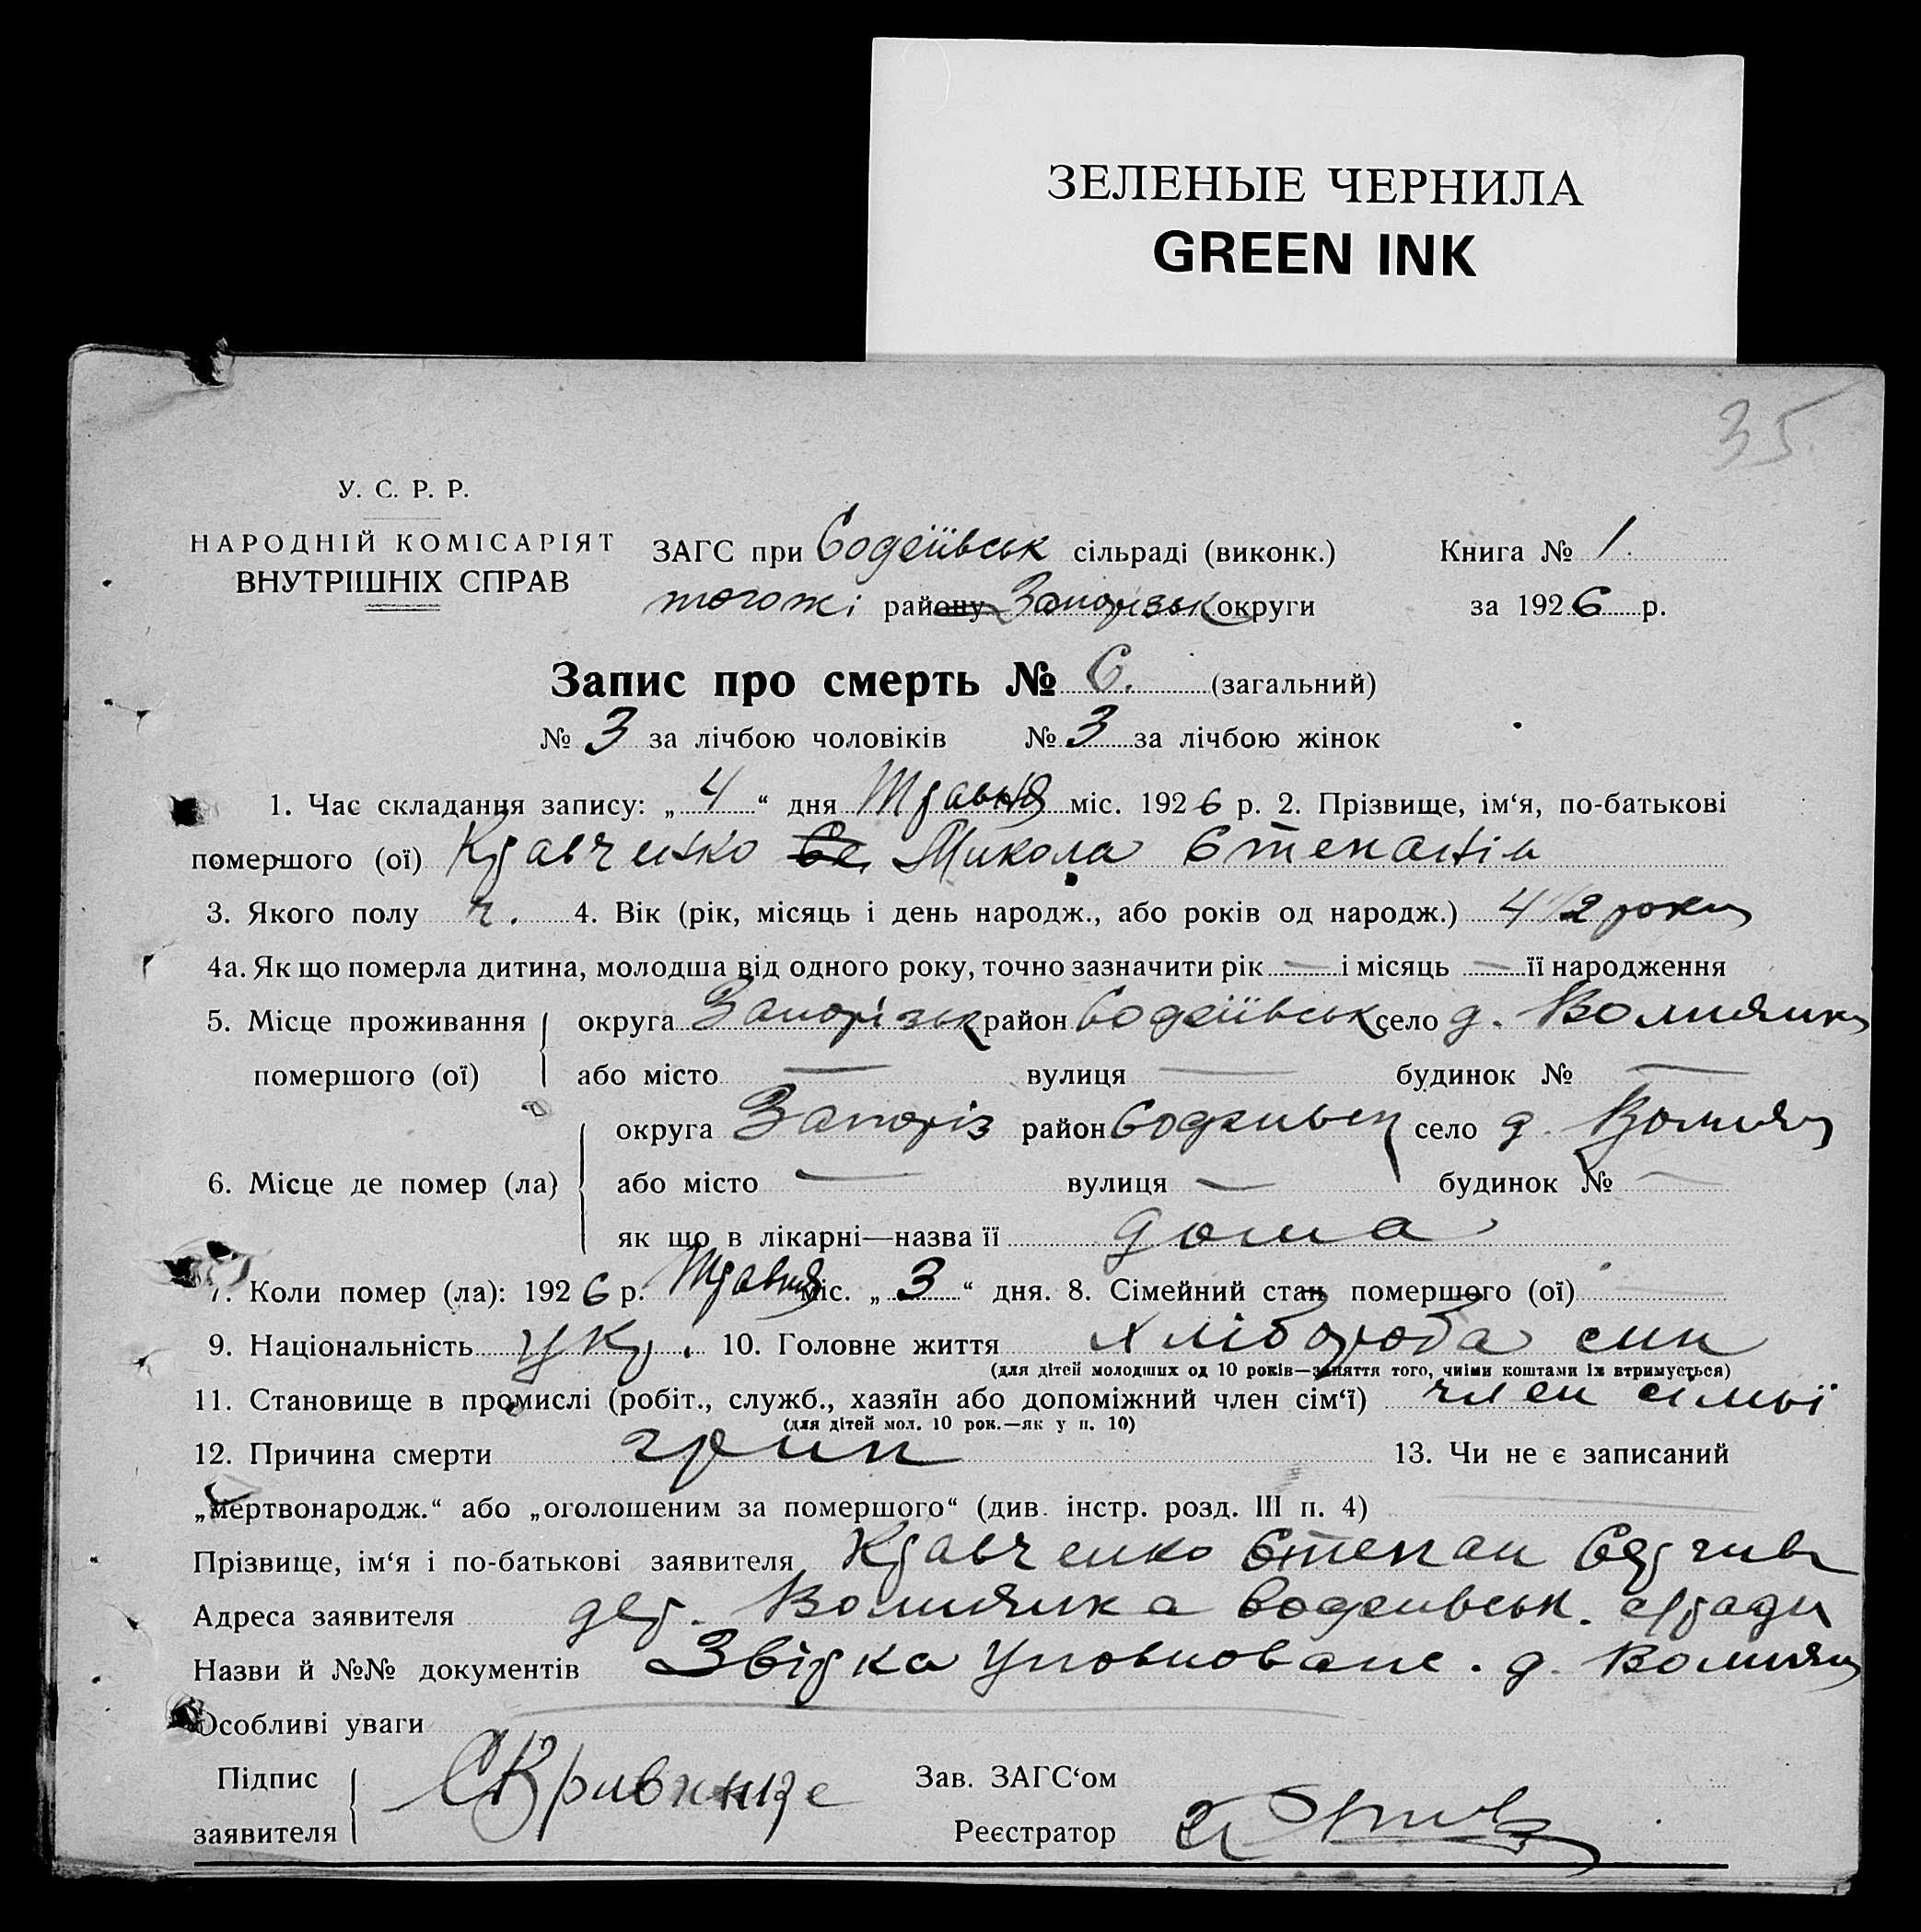 ЗЕЛЕНЫЕ ЧЕРНИЛА
GREEN INK
35
У. С. Р. Р.
НАРОДНІЙ КОМІСАРІЯТ
ВНУТРІШНІХ СПРАВ
ЗАГС при сільраді (виконк.)
Книга № 1
тогожі району Запорізьк округи
за 1926 р.
Запис про смерть № 6. (загальний)
№ 3 за лічбою чоловіків № 3 за лічбою жінок
1. Час складання запису: „4“ дня Травня міс. 1926 р. 2. Прізвище, ім‘я, по-батькові
помершого (ої) Кравченко Микола Степанів
3. Якого полу ч. 4. Вік (рік, місяць і день народж., або років од народж.) 4 1/2 роки
4а. Як що померла дитина, молодша від одного року, точно зазначити рік — і місяць — її народження
5. Місце проживання округа Запорізьк район село д.
помершого (ої) або місто — вулиця — будинок № —
округа Запоріз район село д.
6. Місце де помер (ла) або місто — вулиця — будинок № —
як що в лікарні—назва її дома
7. Коли помер (ла): 1926 р. Травня міс. „3“ дня. 8. Сімейний стан помершого (ої) —
9. Національність укр. 10. Головне життя хлібороба син
(для дітей молодших од 10 років—заняття того, чиїми коштами їх втримується)
11. Становище в промислі (робіт., служб., хазяїн або допоміжний член сім‘ї) член сімьї
(для дітей мол. 10 рок.—як у п. 10)
12. Причина смерти грип 13. Чи не є записаний
„мертвонародж.“ або „оголошеним за помершого“ (див. інстр. розд. III п. 4) —
Прізвище, ім‘я і по-батькові заявителя Кравченко Степан
Адреса заявителя дер. с/ради
Назви й №№ документів Звірка Уповноваж. д.
Особливі уваги
Підпис
заявителя
Зав. ЗАГС‘ом
Реєстратор